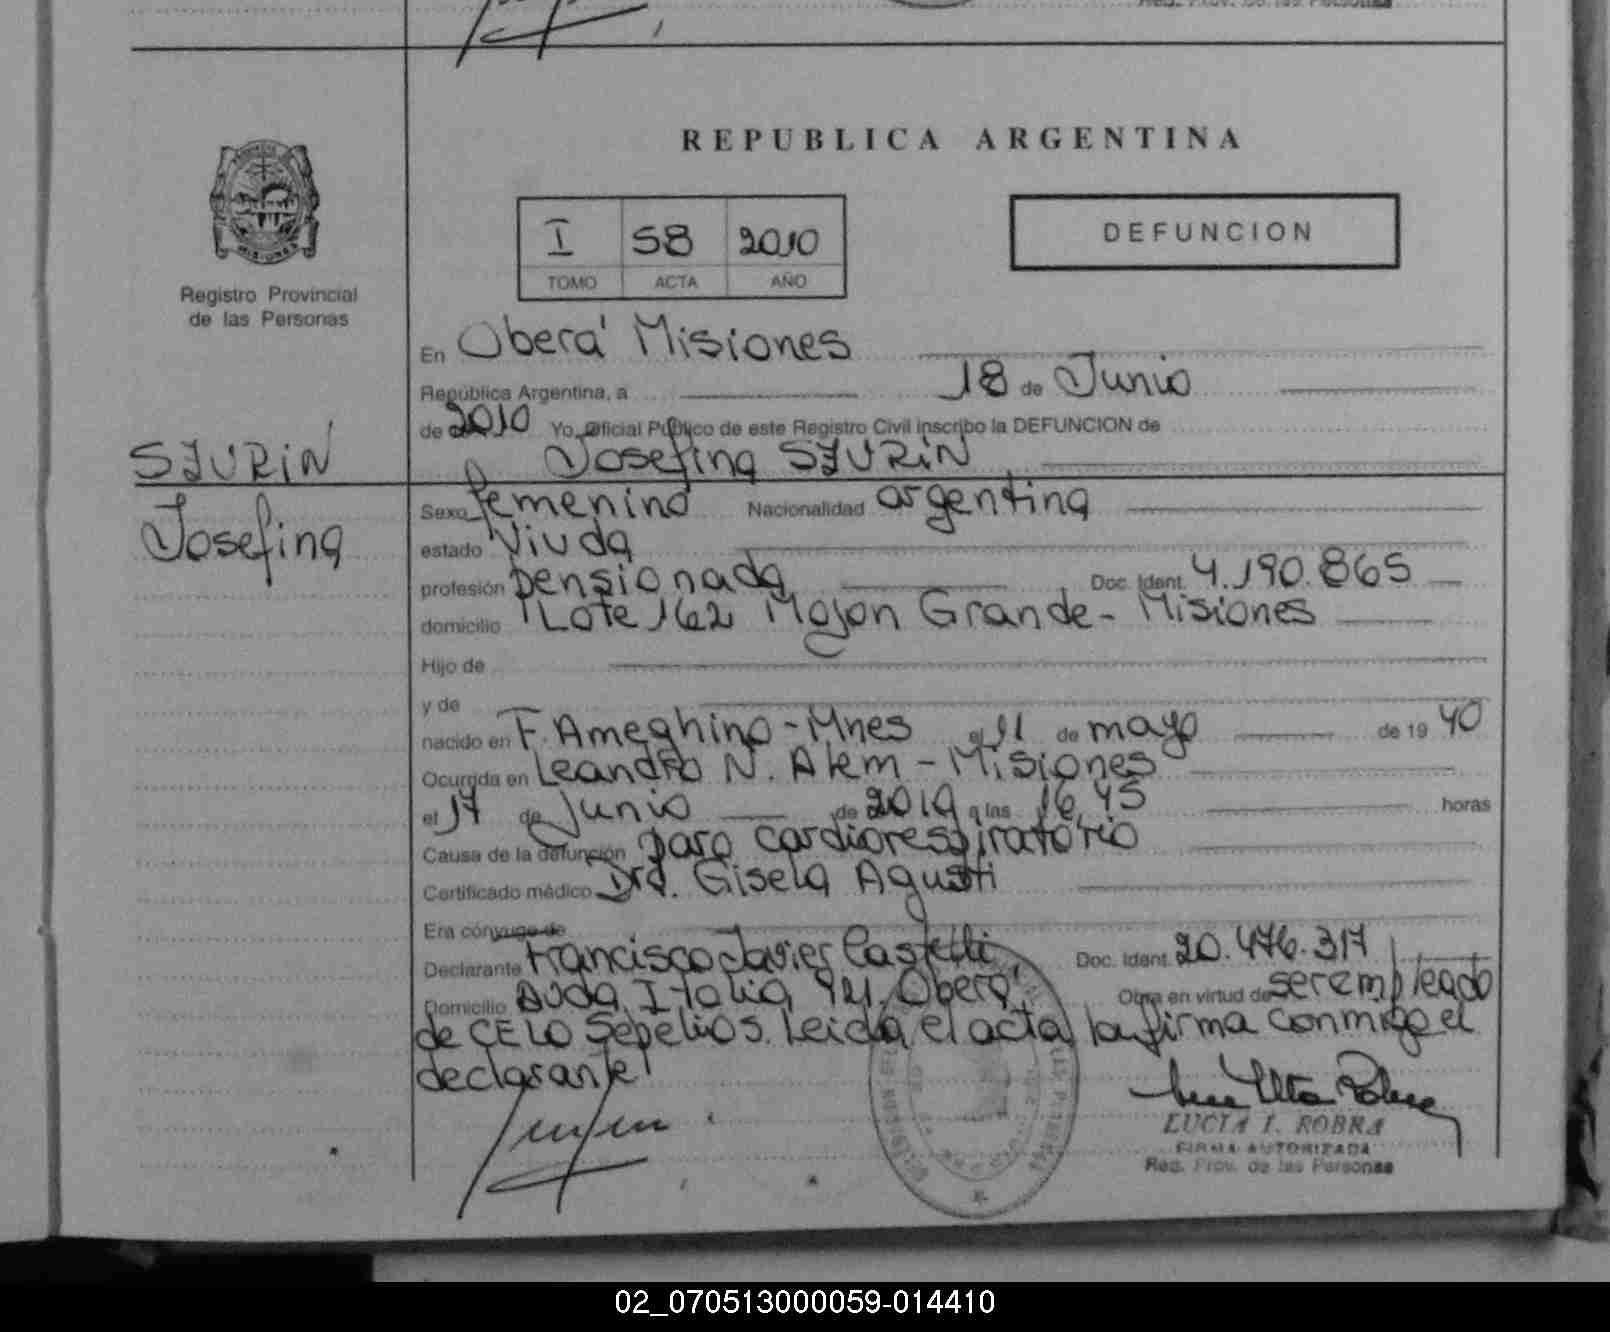 REPUBLICA ARGENTINA
I 58 2010
TOMO ACTA AÑO
DEFUNCION
MISIONES
Registro Provincial
de las Personas
En Oberá Misiones
República Argentina, a 18 de Junio
de 2010 Yo, Oficial Público de este Registro Civil inscribo la DEFUNCION de
Josefina SZURIN
SZURIN
Josefina
Sexo femenino Nacionalidad argentina
estado Viuda
profesión pensionada Doc. Ident. 4.190.865
domicilio Lote 162 Mojon Grande - Misiones
Hijo de
y de
nacido en F. Ameghino - Mnes el 11 de mayo de 19 40
Ocurrida en Leandro N. Alem - Misiones
el 17 de Junio de 2010 a las 16,45 horas
Causa de la defunción paro cardiorespiratorio
Certificado médico Dra. Gisela Agusti
Era cónyuge de
Declarante Francisco Javier Castelli Doc. Ident. 20.476.317
Domicilio Avda Italia 921, Oberá, Obra en virtud de ser empleado
de CELO Sepelios. Leida el acta la firma conmigo el
declarante
LUCIA I. ROBRA
FIRMA AUTORIZADA
Reg. Prov. de las Personas
02_070513000059-014410